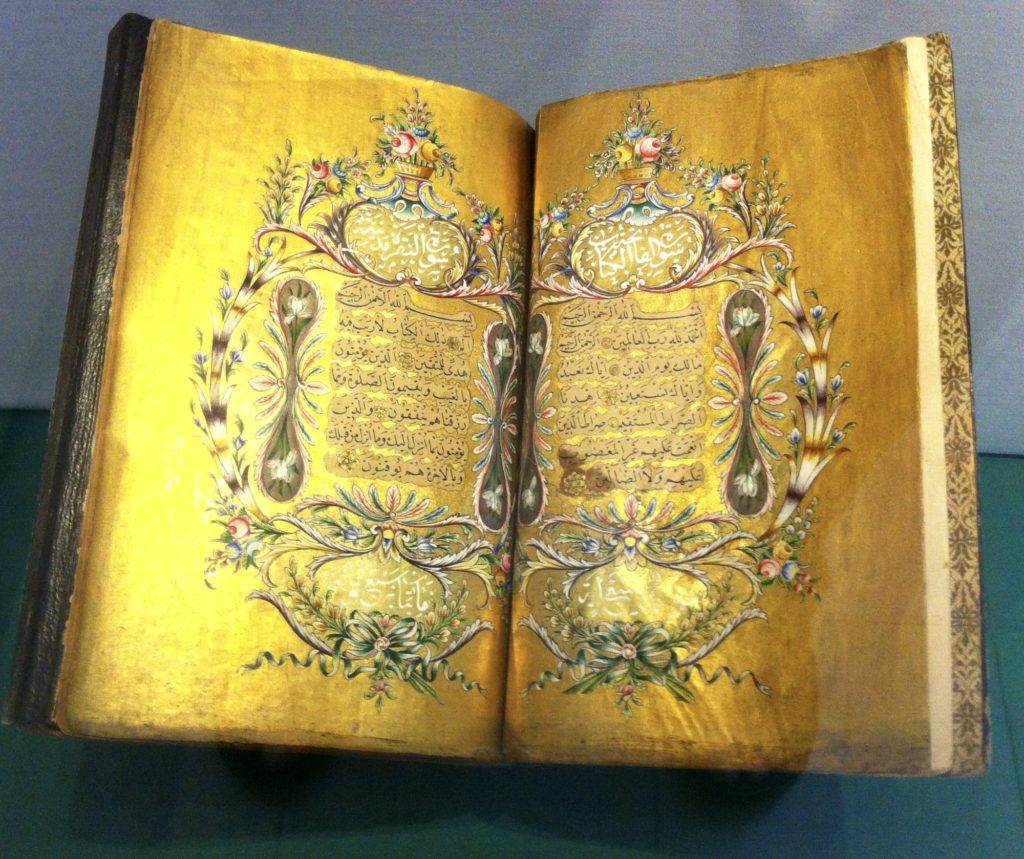 سورة فاتحة الكتاب
بسم الله الرحمن الرحيم
الحمد لله رب العالمين الرحمن الرحيم
مالك يوم الدين اياك نعبد
واياك نستعين اهدنا
الصراط المستقيم صراط الذين
انعمت عليهم غير المغضوب
عليهم ولا الضالين
سورة البقرة مدنية
بسم الله الرحمن الرحيم
الم ذلك الكتاب لا ريب فيه
هدى للمتقين الذين يؤمنون
بالغيب ويقيمون الصلوة ومما
رزقناهم ينفقون والذين
يؤمنون بما انزل اليك وما انزل من قبلك
وبالآخرة هم يوقنون